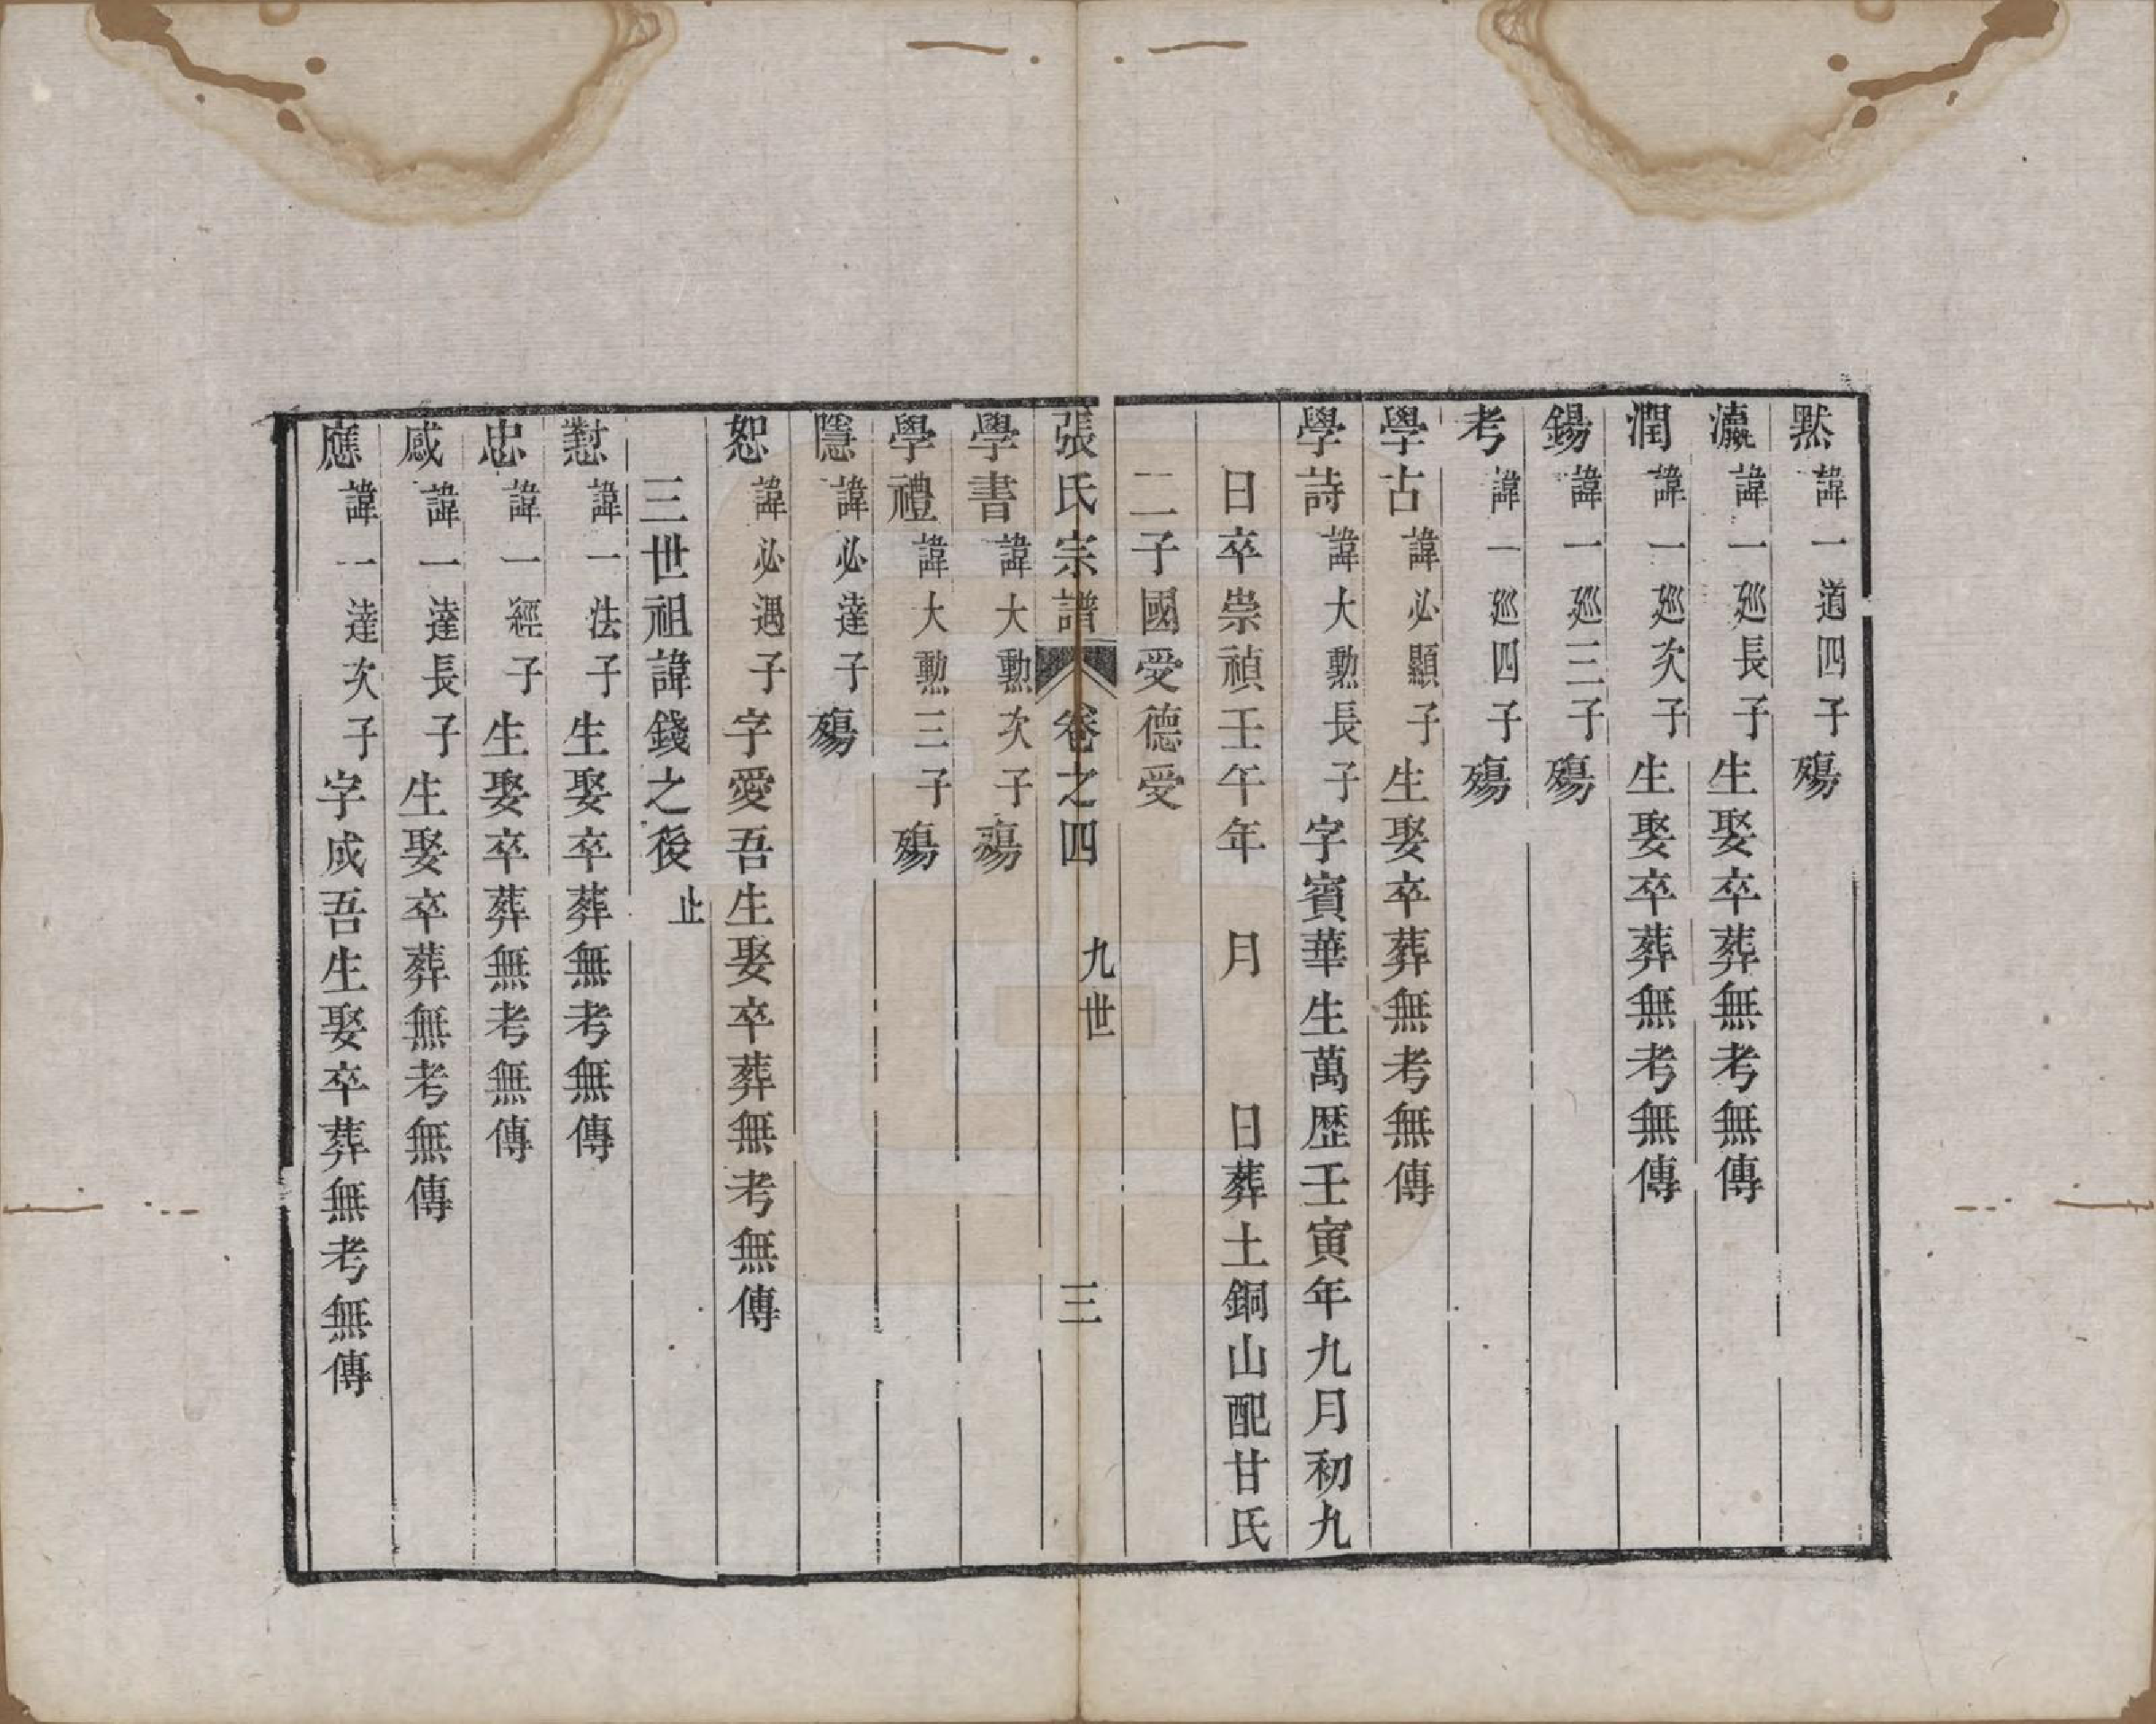 黙諱一道四子殤
瀛諱一廵長子生娶卒葬無考無傳
潤諱一廵次子生娶卒葬無考無傳
錫諱一廵三子殤
考諱一廵四子殤
學古諱必顯子生娶卒葬無考無傳
學詩諱大勲長子字賓華生萬歴壬寅年九月初九
日卒崇禎壬午年　月　　日葬土銅山配甘氏
二子國受德受
張氏宗譜　卷之四　九世　三
學書諱大勲次子殤
學禮諱大勲三子殤
隱諱必達子殤
恕諱必遇子字愛吾生娶卒葬無考無傳
三世祖諱錢之後止
懟諱一法子生娶卒葬無考無傳
忠諱一經子生娶卒葬無考無傳
感諱一達長子生娶卒葬無考無傳
應諱一達次子字成吾生娶卒葬無考無傳